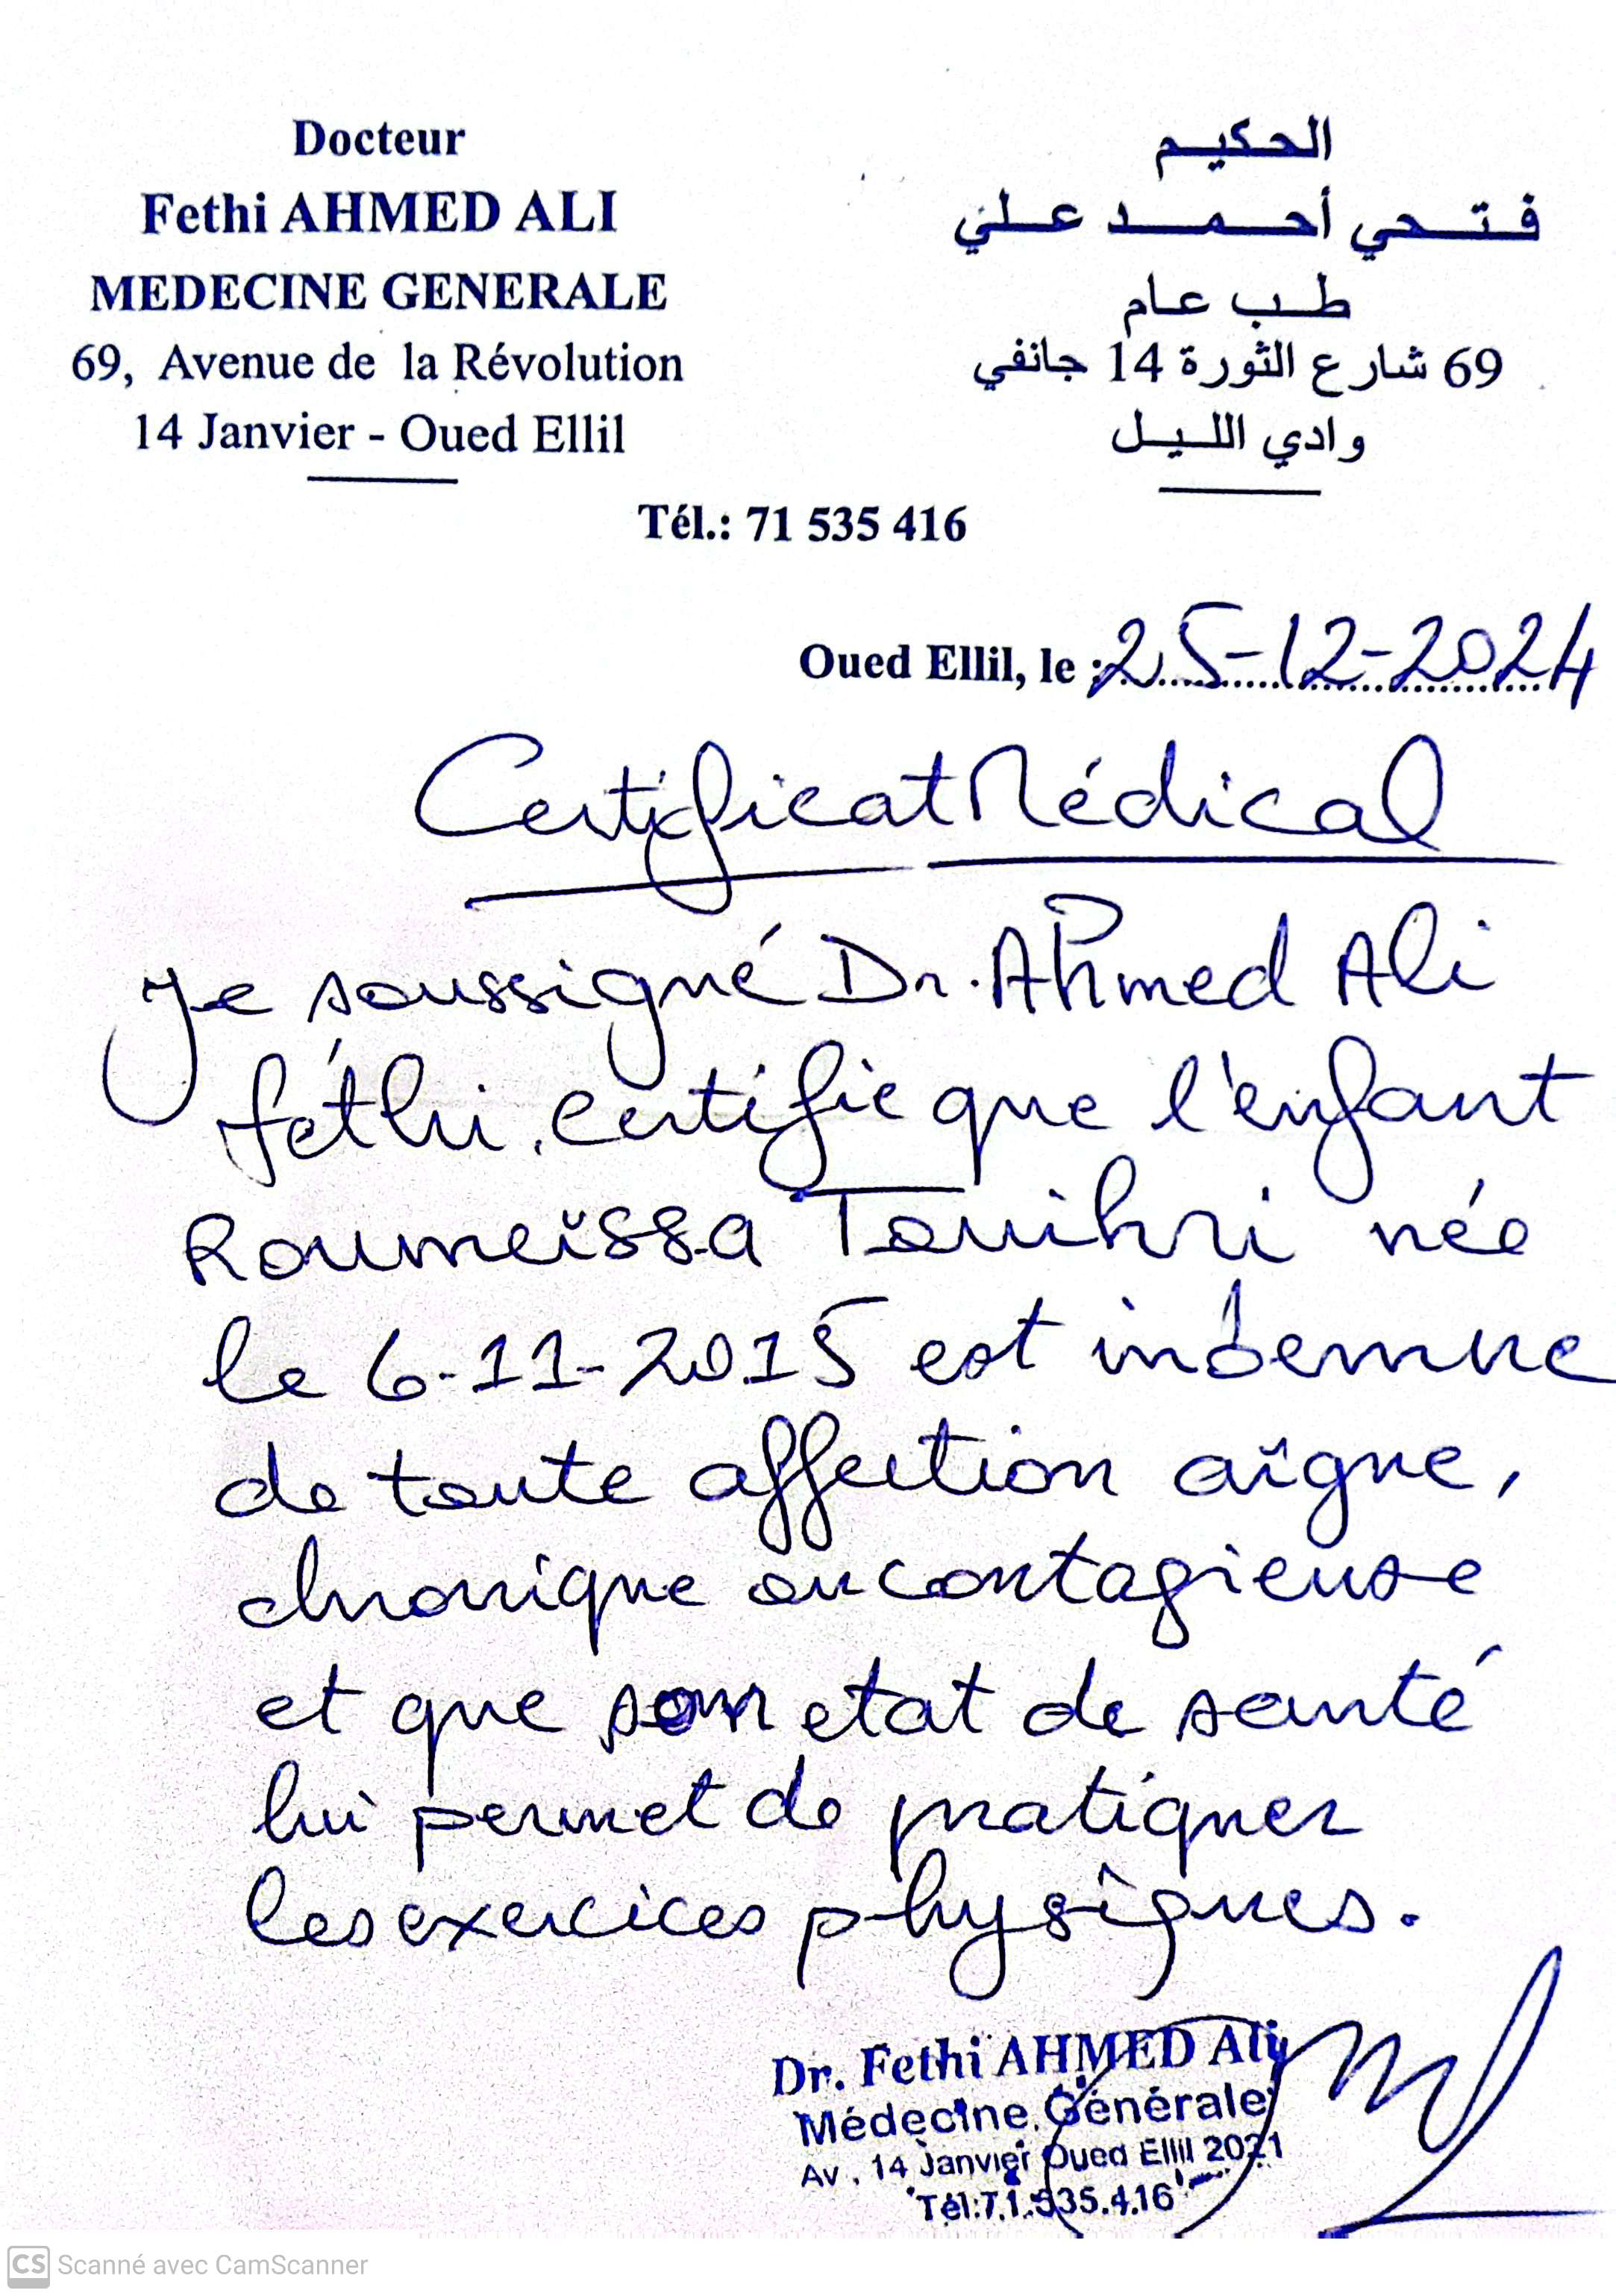 Docteur
Fethi AHMED ALI
MEDECINE GENERALE
69, Avenue de la Révolution
14 Janvier - Oued Ellil
الحكيم
فتحي أحمد علي
طب عام
69 شارع الثورة 14 جانفي
وادي الليل
Tél.: 71 535 416
Oued Ellil, le : 25-12-2024
Certificat Médical
Je soussigné Dr. Ahmed Ali
féthi, certifie que l'enfant
Roumeïssa Touihri née
le 6-11-2015 est indemne
de toute affection aïgue,
chronique ou contagieuse
et que son etat de santé
lui permet de pratiquer
les exercices physiques.
Dr. Fethi AHMED Ali
Médecine Générale
Av . 14 Janvier Oued Ellil 2021
Tél:71.535.416
CS Scanné avec CamScanner